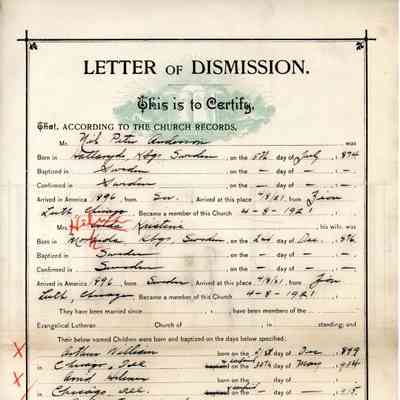 LETTER OF DISMISSION.
This is to Certify,
That, ACCORDING TO THE CHURCH RECORDS,
Mr. Nils Peter Anderson was
Born in Sweden, on the 5th day of July, 1874
Baptized in Sweden, on the — day of —, —
Confirmed in Sweden, on the — day of —, —
Arrived in America 1896, from Sw. Arrived at this place from Zion
Luth. Chicago. Became a member of this Church 4-8-1921
Mrs. Kristina, his wife, was
Born in Sweden, on the 2nd day of Dec., 1876
Baptized in Sweden, on the — day of —, —
Confirmed in Sweden, on the — day of —, —
Arrived in America 1896, from Sweden. Arrived at this place from Zion
Luth., Chicago. Became a member of this Church 4-8-1921
They have been married since , have been members of the
Evangelical Lutheran Church of , in standing; and
Their below named Children were born and baptized on the days below specified:
X Arthur William born on the 21st day of Dec. 1899
Chicago, Ill. baptized confirmed 30th day of May 1914
X Arvid born on the day of
Chicago, Ill. baptized confirmed 1915